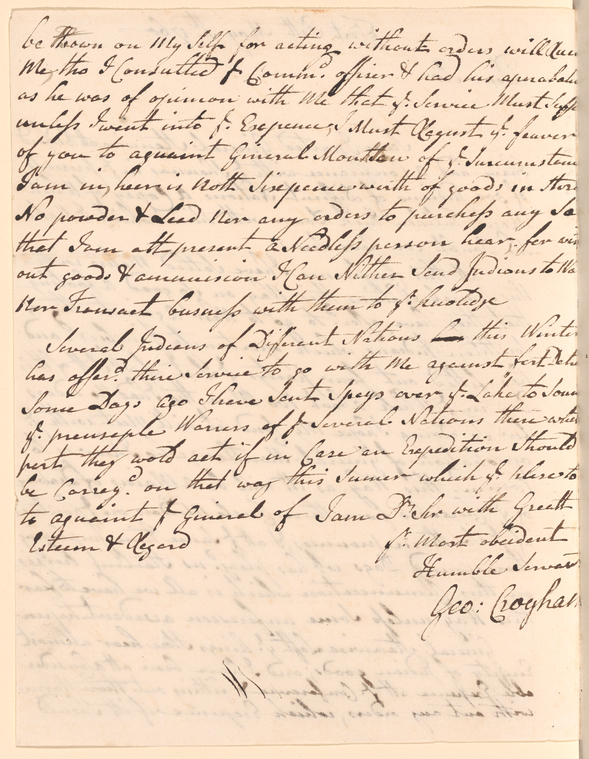 be thrown on My Self for acting without orders will
Me, tho I Consulted ye Commd. officer & had his aproba
as he was of opinion with Me that ye. Service Must
unless I went into ye. Expence, I Must Request ye. feaver
of you to aquaint General of ye. Surcumstan
I am in, heer is Noth Sixpence worth of goods in Stor
No powder & Lead Nor any orders to purchess any So
that I am att present a Needless person hear, for with
out goods & amunision I Can Nither Send Indians to Wa
Nor Transact busness with them to ye.
Several Indians of Different Nations this Winter
has offerd. thire Service to go with Me against fort De
Some Days ago I have Sent Speys over ye. Lake to Soun
ye. prenseple Warrers of ye Several Nations there what
pert they wold act if in Case an Expedition Should
be Carreyd. on that way this Sumer which ye. plese to
to aquaint ye General of I am Dr. Sir with Greatt
Esteem & Regard
yr. Most obeident
Humble Servan
Geo: Croghan